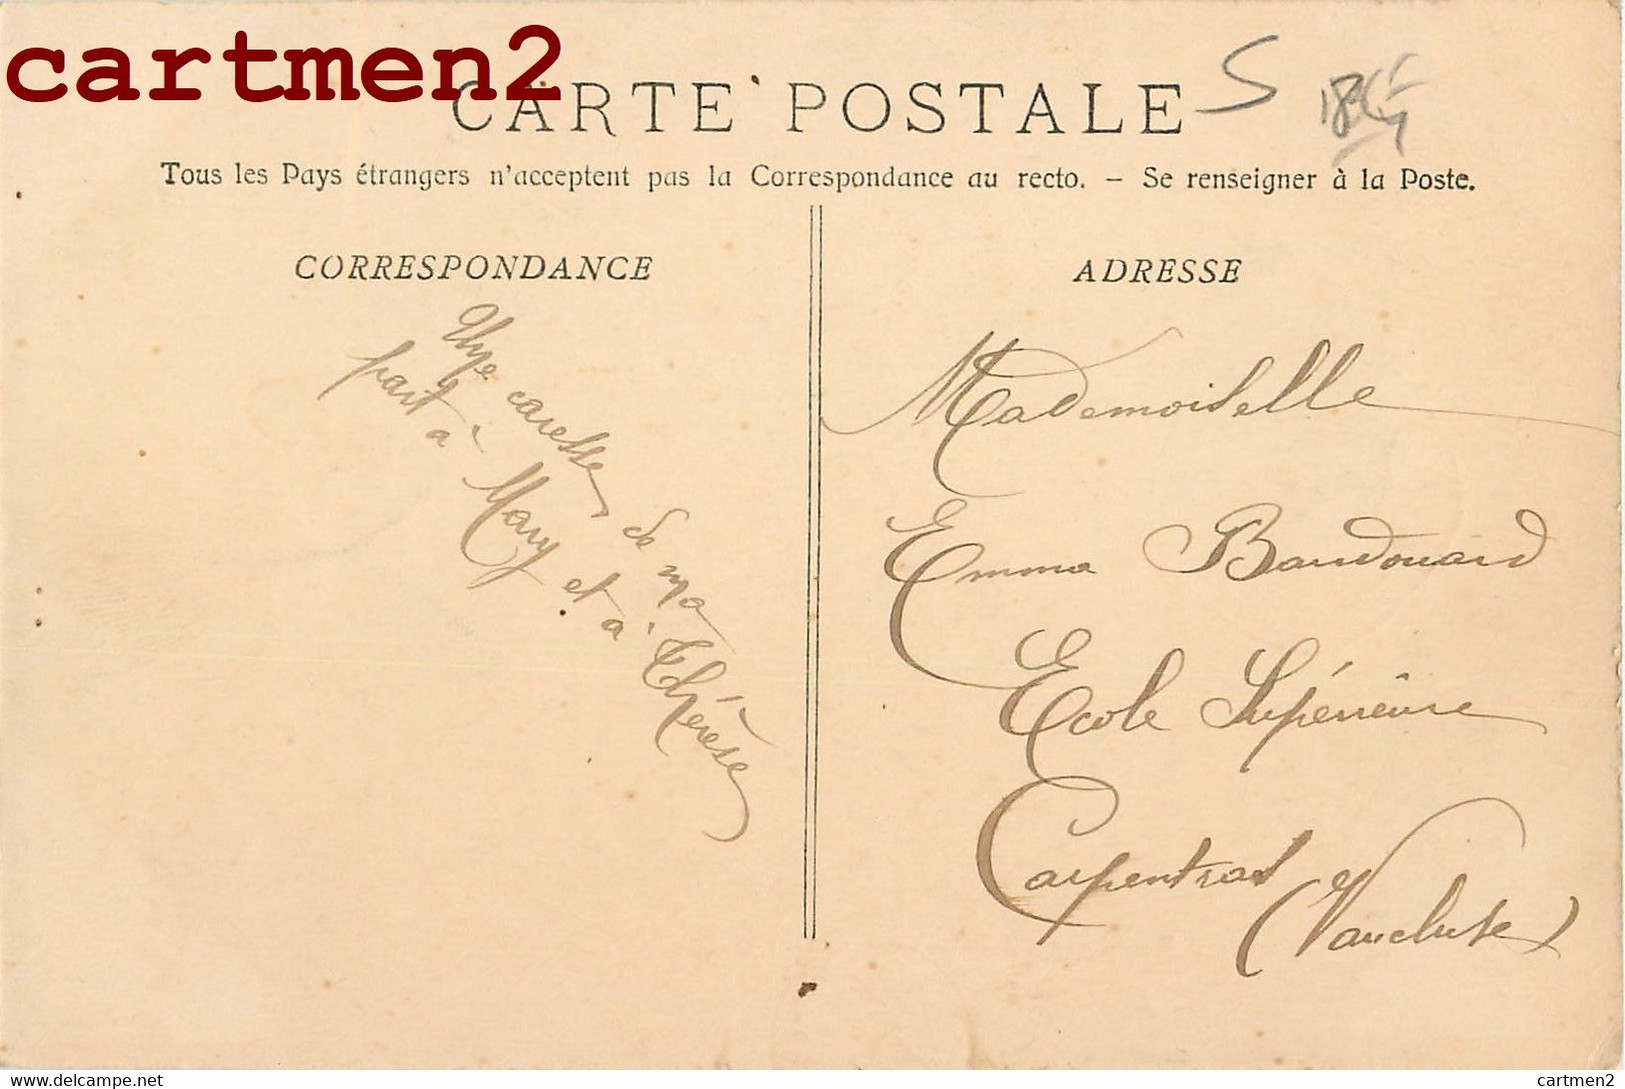 cartmen2
CARTE POSTALE
S
Tous les Pays étrangers n'acceptent pas la Correspondance au recto. – Se renseigner à la Poste.
CORRESPONDANCE
Une caresse de ma
part à Mary et à Thérèse
ADRESSE
Mademoiselle
Emma Baudouard
Ecole Supérieure
Carpentras
(Vaucluse)
delcampe.net
cartmen2